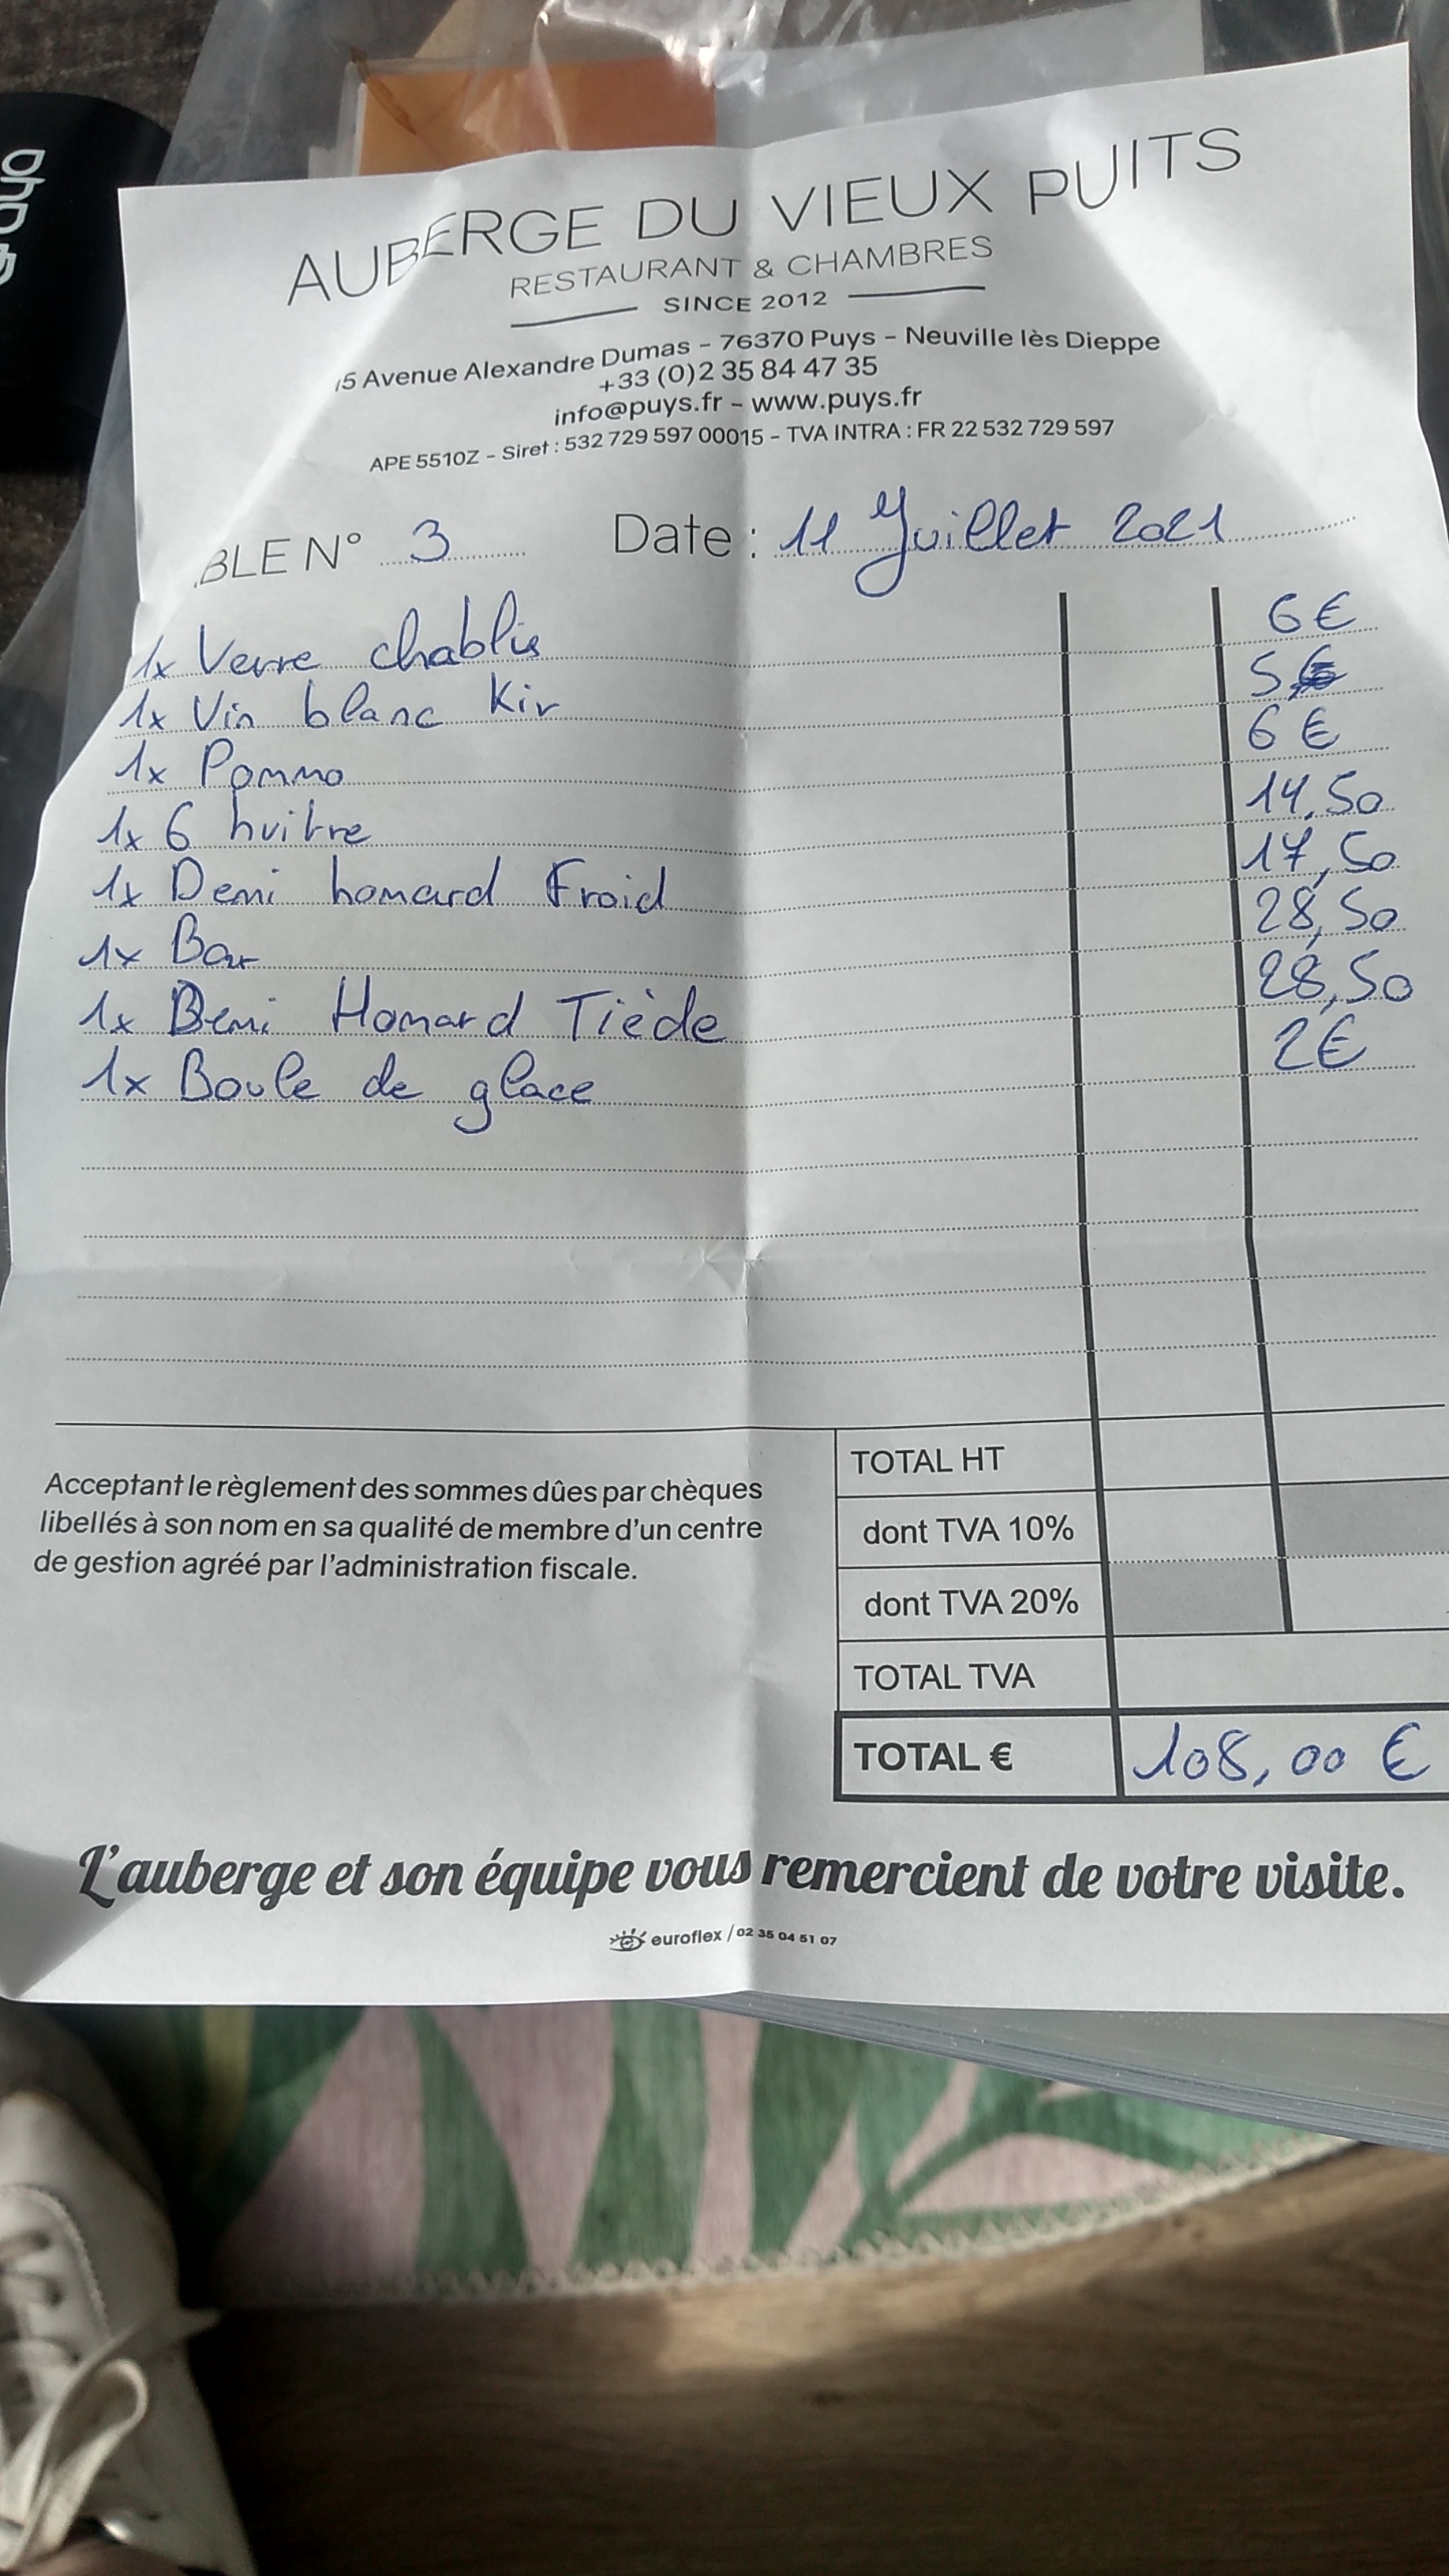 AUBERGE DU VIEUX PUITS
RESTAURANT & CHAMBRES
SINCE 2012
5 Avenue Alexandre Dumas - 76370 Puys - Neuville lès Dieppe
+33 (0)2 35 84 47 35
info@puys.fr - www.puys.fr
APE 5510Z - Siret : 532 729 597 00015 - TVA INTRA : FR 22 532 729 597
BLE N° 3 Date : 11 Juillet 2021
1x Verre chablis 6€
1x Vin blanc Kir 5€
1x Pommo 6€
1x 6 huitre 14,50
1x Demi homard Froid 17,50
1x Bar 28,50
1x Demi Homard Tiède 28,50
1x Boule de glace 2€
Acceptant le règlement des sommes dûes par chèques
libellés à son nom en sa qualité de membre d'un centre
de gestion agréé par l'administration fiscale.
TOTAL HT
dont TVA 10%
dont TVA 20%
TOTAL TVA
TOTAL € 108,00 €
L'auberge et son équipe vous remercient de votre visite.
euroflex / 02 35 04 51 07